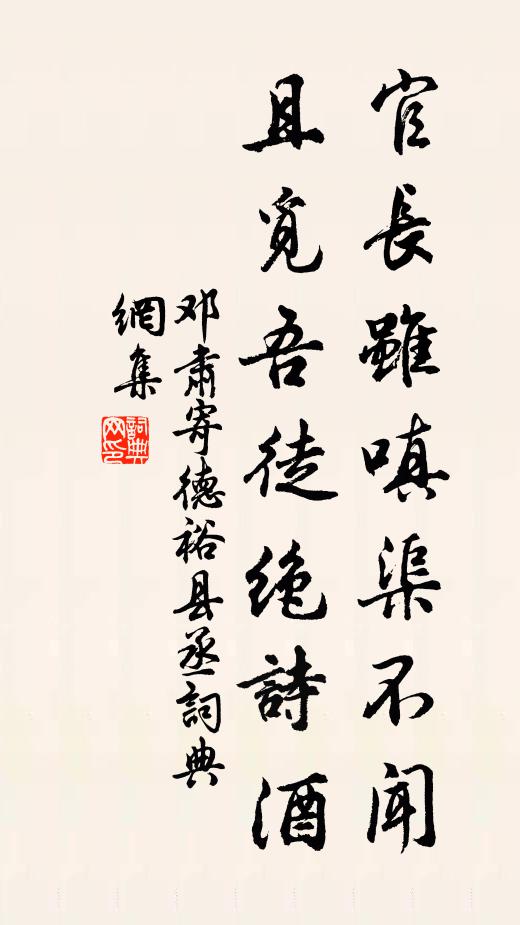 官長雖嗔渠不闻
且覓吾徒绝詩酒
邓肅寄德裕县丞詞典
網集
詞典网印